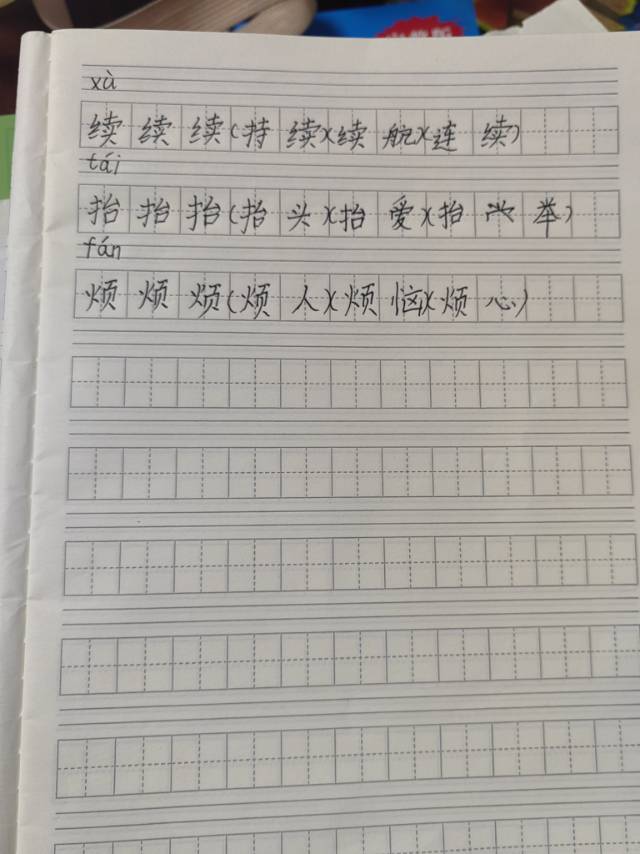 xù
续续续(持续)(续航)(连续)
tái
抬抬抬(抬头)(抬爱)(抬举)
fán
烦烦烦(烦人)(烦恼)(烦心)